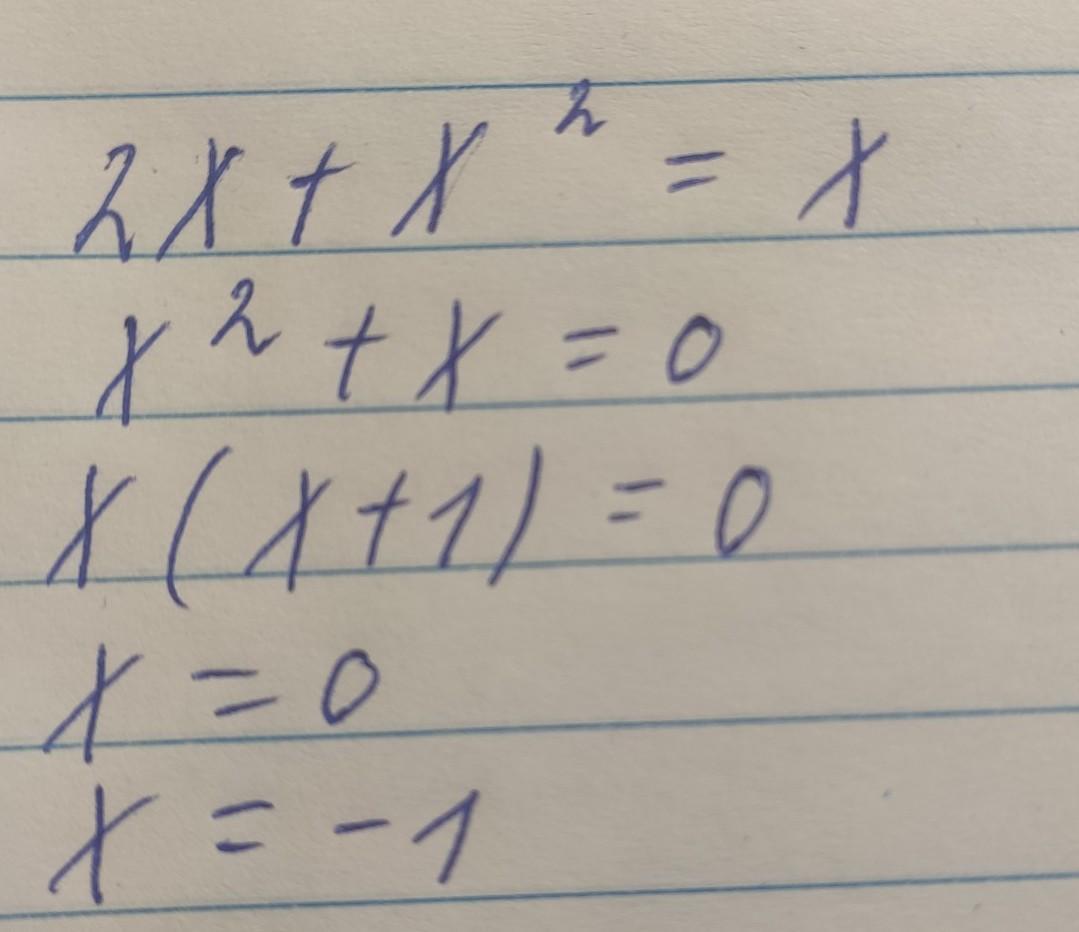 2x + x² = x
x² + x = 0
x(x+1) = 0
x = 0
x = -1